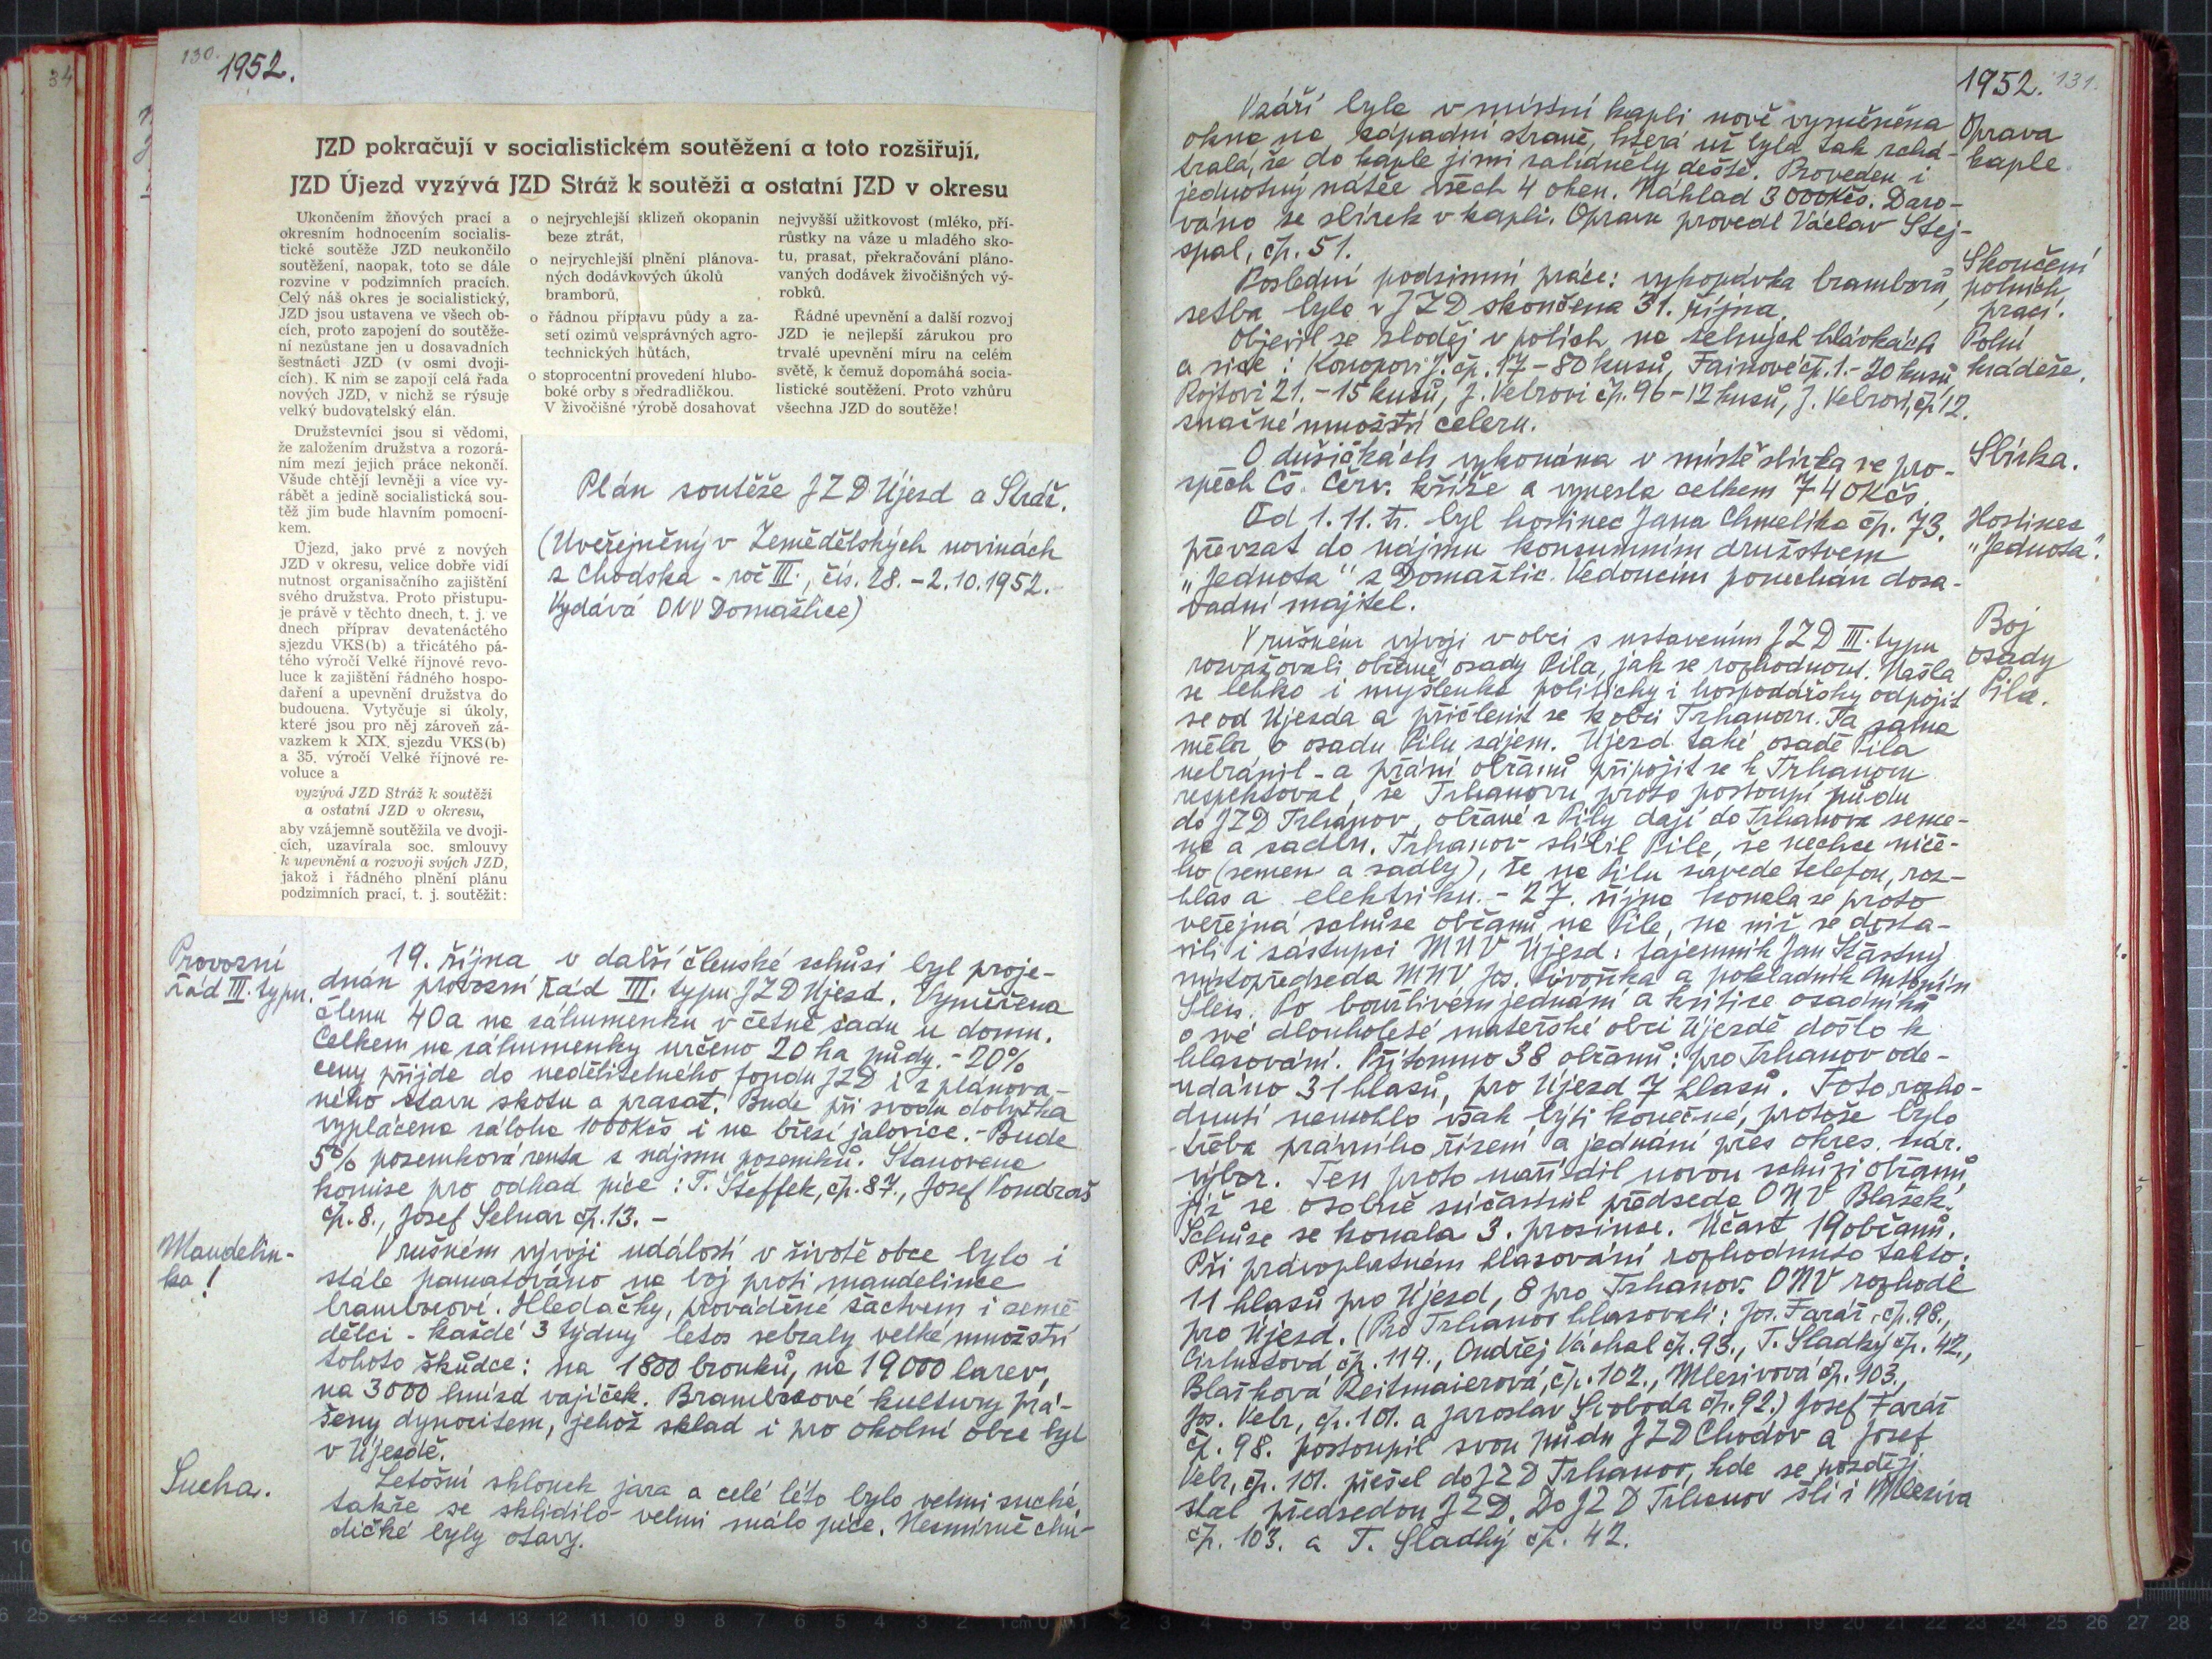 130.
1952.
JZD pokračují v socialistickém soutěžení a toto rozšiřují,
JZD Újezd vyzývá JZD Stráž k soutěži a ostatní JZD v okresu
Ukončením žňových prací a
okresním hodnocením socialis-
tické soutěže JZD neukončilo
soutěžení, naopak, toto se dále
rozvine v podzimních pracích.
Celý náš okres je socialistický,
JZD jsou ustavena ve všech ob-
cích, proto zapojení do soutěže-
ní nezůstane jen u dosavadních
šestnácti JZD (v osmi dvoji-
cích). K nim se zapojí celá řada
nových JZD, v nichž se rýsuje
velký budovatelský elán.
Družstevníci jsou si vědomi,
že založením družstva a rozorá-
ním mezí jejich práce nekončí.
Všude chtějí levněji a více vy-
rábět a jedině socialistická sou-
těž jim bude hlavním pomocní-
kem.
Újezd, jako prvé z nových
JZD v okresu, velice dobře vidí
nutnost organisačního zajištění
svého družstva. Proto přistupu-
je právě v těchto dnech, t. j. ve
dnech příprav devatenáctého
sjezdu VKS(b) a třicátého pá-
tého výročí Velké říjnové revo-
luce k zajištění řádného hospo-
daření a upevnění družstva do
budoucna. Vytyčuje si úkoly,
které jsou pro něj zároveň zá-
vazkem k XIX. sjezdu VKS(b)
a 35. výročí Velké říjnové re-
voluce a
vyzývá JZD Stráž k soutěži
a ostatní JZD v okresu,
aby vzájemně soutěžila ve dvoji-
cích, uzavírala soc. smlouvy
k upevnění a rozvoji svých JZD,
jakož i řádného plnění plánu
podzimních prací, t. j. soutěžit:
o nejrychlejší sklizeň okopanin
beze ztrát,
o nejrychlejší plnění plánova-
ných dodávkových úkolů
bramborů,
o řádnou přípravu půdy a za-
setí ozimů ve správných agro-
technických lhůtách,
o stoprocentní provedení hlubo-
boké orby s předradličkou.
V živočišné výrobě dosahovat
nejvyšší užitkovost (mléko, pří-
růstky na váze u mladého sko-
tu, prasat, překračování pláno-
vaných dodávek živočišných vý-
robků.
Řádné upevnění a další rozvoj
JZD je nejlepší zárukou pro
trvalé upevnění míru na celém
světě, k čemuž dopomáhá socia-
listické soutěžení. Proto vzhůru
všechna JZD do soutěže!
Plán soutěže JZD Újezd a Stráž.
(Uveřejněný v Zemědělských novinách
z Chodska - roč III., čís. 28. - 2.10.1952.
Vydává ONV Domažlice)
Provozní
řád III. typu.
19. října v další členské schůzi byl proje-
dnán provozní řád III. typu JZD Újezd. Vyměřena
členu 40a na záhumenku v četně sadu u domu.
Celkem na záhumenky určeno 20 ha půdy. - 20%
ceny přijde do nedělitelného fondu JZD i z plánova-
ného stavu skotu a prasat. Bude při svodu dobytka
vyplácena záloha 1000Kčs i na březí jalovice. - Bude
5% pozemková renta z nájmu pozemků. Stanovena
komise pro odhad píce: T. Šteffek, čp. 87., Josef Vondraš
čp. 8., Josef Selnar čp. 13. -
Mandelin-
ka!
V rušném vývoji událostí v životě obce bylo i
stále pamatováno na boj proti mandelince
bramborové. Hledačky, prováděné žactvem i země-
dělci - každé 3 týdny letos sebraly velké množství
tohoto škůdce: na 1800 brouků, na 19000 larev,
na 3000 hnízd vajíček. Bramborové kultury prá-
šeny dynocitem, jehož sklad i pro okolní obce byl
v Újezdě.
Sucha.
Letošní sklonek jara a celé léto bylo velmi suché,
takže se sklidilo velmi málo píce. Nesmírně chu-
dičké byly otavy.
1952.
131.
V září byla v místní kapli nově vyměněna
okna na západní straně, která už byla tak zchá-
tralá, že do kaple jimi zabíhěly deště. Proveden i
jednotný nátěr všech 4 oken. Náklad 3000Kčs. Daro-
váno ze sbírek v kapli. Opravu provedl Václav Stej-
spal, čp. 51.
Oprava
kaple.
Poslední podzimní práce: vykopávka bramborů,
setba byla v JZD skončena 31. října.
Skončení
polních
prací.
Objevil se zloděj v polích na zelných hlávkách
a sice: Konopovi J. čp. 17 - 80 kusů, čp. 1. - 20 kusů,
Rojtovi 21. - 15 kusů, J. Vebrovi čp. 96 - 12 kusů, J. Vebrovi, čp. 12.
značné množství celeru.
Polní
krádeže.
O dušičkách vykonána v místě sbírka ve pro-
spěch Čs. Červ. kříže a vynesla celkem 740Kčs.
Sbírka.
Od 1. 11. t.r. byl hostinec Jana Chmelíka čp. 73.
převzat do nájmu konsumním družstvem
"Jednota" z Domažlic. Vedoucím ponechán dosa-
vadní majitel.
Hostinec
"Jednota".
V rušném vývoji v obci s ustavením JZD III. typu
rozvažovali občané osady Pila, jak se rozhodnout. Našla
se lehko i myšlenka politicky i hospodářsky odpojit
se od Újezda a přičlenit se k obci Trhanovu. Ta sama
měla o osadu Pilu zájem. Újezd také osadě Pila
nebránil - a přání občanů připojit se k Trhanovu
respektoval, že Trhanovu proto postoupí půdu
do JZD Trhanov, občané z Pily dají do Trhanova seme-
na a sadbu. Trhanov slíbil Pile, že nechce niče-
ho (semen a sadby), že na Pilu zavede telefon, roz-
hlas a elektriku. - 27. října konala se proto
veřejná schůze občanů na Pile, na niž se dosta-
vili i zástupci MNV Újezd: tajemník Jan Šťastný
místopředseda MNV Jos. Sivoňka a pokladník Antonín
Sleis. Po bouřlivém jednání a kritice osadníků
o své dlouholeté mateřské obci Újezdě došlo k
hlasování. Přítomno 38 občanů: pro Trhanov ode-
vzdáno 31 hlasů, pro Újezd 7 hlasů. Toto rozho-
dnutí nemohlo však býti konečné, protože bylo
třeba právního řízení a jednání přes okres. nár.
výbor. Ten proto nařídil novou schůzi občanů,
jíž se osobně súčastnil předseda ONV Blašek.
Schůze se konala 3. prosince. Účast 19 občanů.
Při právoplatném hlasování rozhodnuto takto:
11 hlasů pro Újezd, 8 pro Trhanov. ONV rozhodl
pro Újezd. (Pro Trhanov hlasovali: Jos. Farář, čp. 98.,
čp. 114., Ondřej Váchal čp. 93., T. Sladký čp. 42.,
Blažková Reitmaierová, čp. 102., Mlezivová čp. 103.,
Jos. Vebr, čp. 101. a Jaroslav Svoboda čp. 92.) Josef Farář
čp. 98. postoupil svou půdu JZD Chodov a Josef
Vebr, čp. 101. přešel do JZD Trhanov, kde se později
stal předsedou JZD. Do JZD Trhanov šli i Mleziva
čp. 103. a T. Sladký čp. 42.
Boj
osady
Pila.